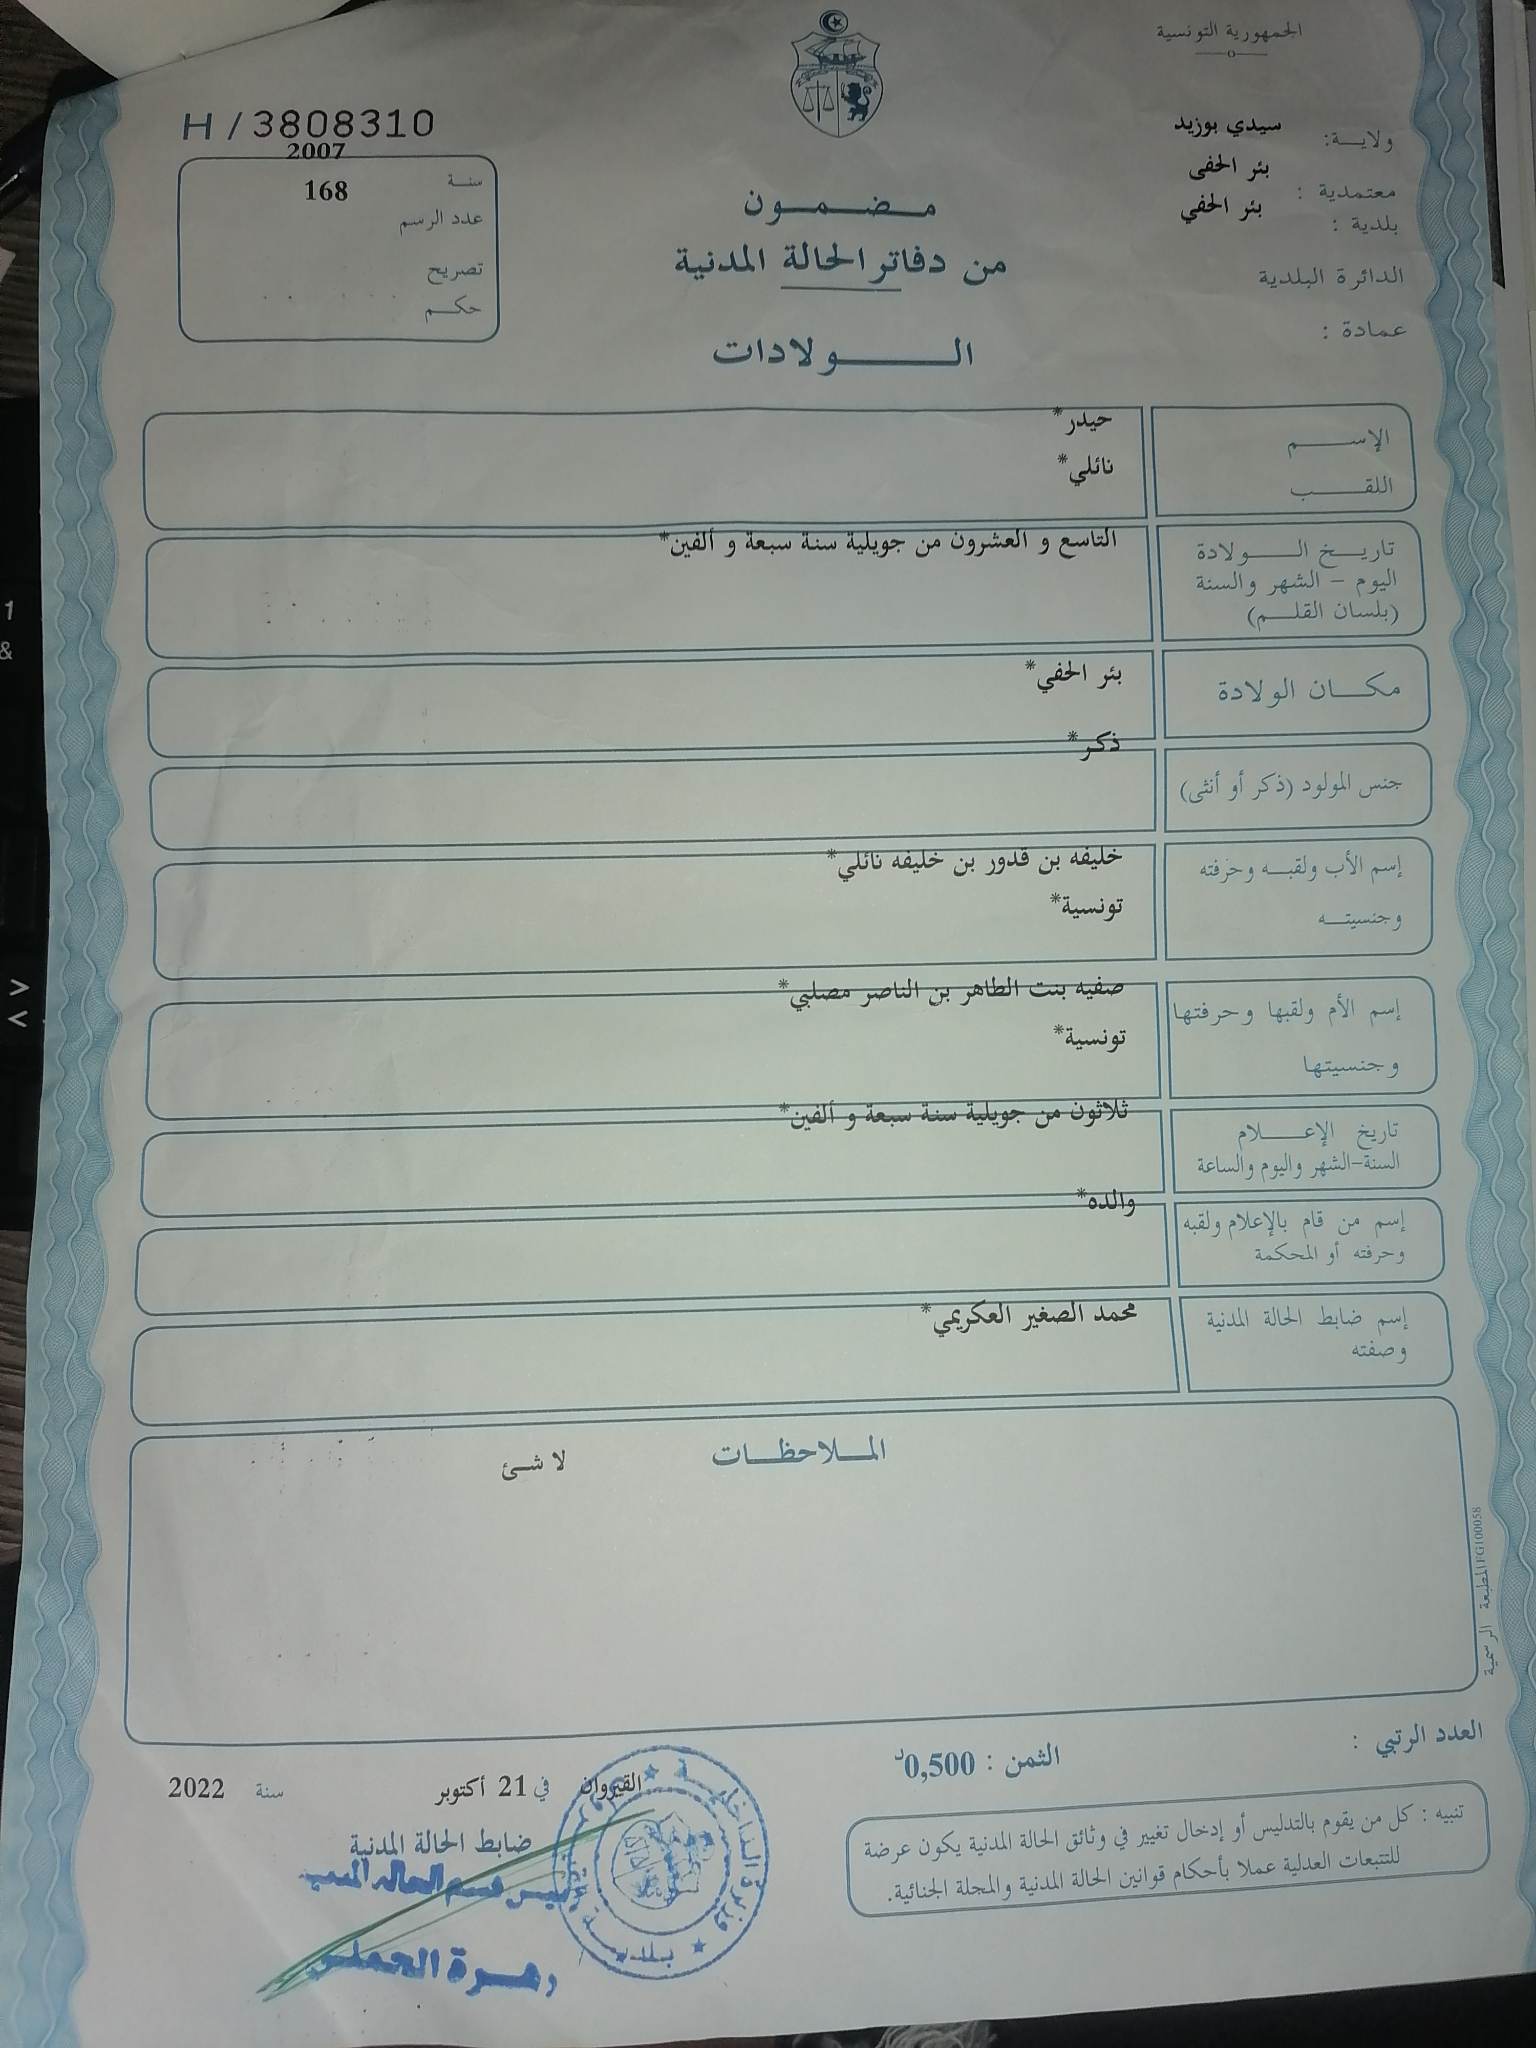 الجمهورية التونسية
ولايـــة: سيدي بوزيد
معتمدية : بئر الحفى
بلدية : بئر الحفي
الدائرة البلدية
عمادة :
H / 3808310
2007
سنة
168
عدد الرسم
تصريح
حكم
مضمون
من دفاتر الحالة المدنية
الولادات
الإسم
حيدر*
اللقب
نائلي*
تاريخ الولادة
اليوم - الشهر والسنة
(بلسان القلم)
التاسع و العشرون من جويلية سنة سبعة و ألفين*
مكان الولادة
بئر الحفي*
جنس المولود (ذكر أو أنثى)
ذكر*
إسم الأب ولقبه وحرفته
وجنسيته
خليفه بن قدور بن خليفه نائلي*
تونسية*
إسم الأم ولقبها وحرفتها
وجنسيتها
صفيه بنت الطاهر بن الناصر مصلبي*
تونسية*
تاريخ الإعلام
السنة-الشهر واليوم والساعة
ثلاثون من جويلية سنة سبعة و ألفين*
إسم من قام بالإعلام ولقبه
وحرفته أو المحكمة
والده*
إسم ضابط الحالة المدنية
وصفته
محمد الصغير العكريمي*
الملاحظات
لا شئ
المطبعة الرسمية FG100058
العدد الرتبي :
الثمن : 0,500د
تنبيه : كل من يقوم بالتدليس أو إدخال تغيير في وثائق الحالة المدنية يكون عرضة
للتتبعات العدلية عملا بأحكام قوانين الحالة المدنية والمجلة الجنائية.
القيروان في 21 أكتوبر سنة 2022
ضابط الحالة المدنية
وزارة الداخلية
بلدية
1
&
>
<